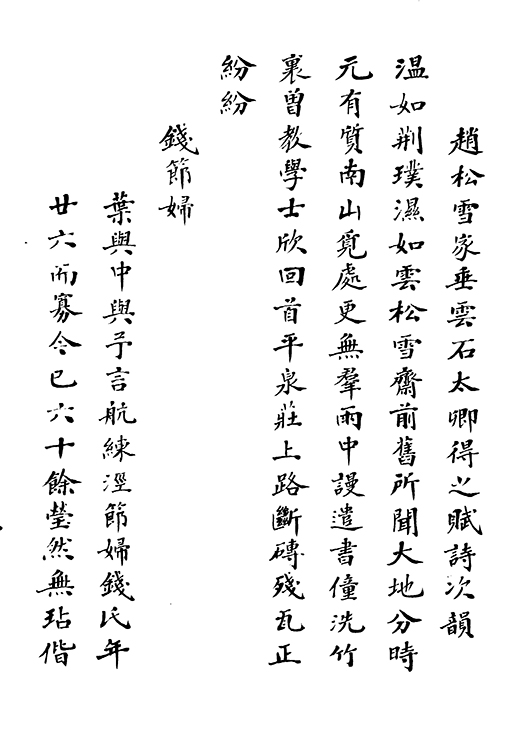 趙松雪家垂雲石太卿得之賦詩次韻
温如荆璞濕如雲松雪齋前舊所聞大地分時
元有質南山覓處更無羣雨中謾遣書僮洗竹
裏曽教學士欣回首平泉莊上路斷磚殘瓦正
紛紛
錢節婦
葉與中與予言航練溼節婦錢氏年
廿六而寡今已六十餘瑩然無玷偕